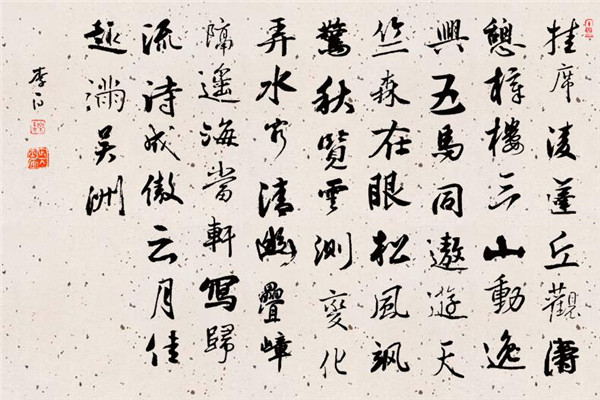 挂席凌蓬丘觀濤
憩樟樓三山動逸
興五馬同遨遊天
竺森在眼松風颯
驚秋覽雲測變化
弄水穷清幽疊嶂
隔遥海當軒寫歸
流诗成傲云月佳
趣滿吴洲
李白